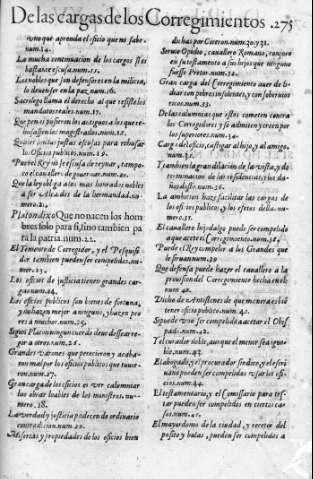 De las cargas de los Corregimientos. 275
uno que aprenda el oficio que no sabe.
num.14.
La mucha continuacion de las cargas es
bastante escusa.num.15.
Los nobles que son defensores en la milicia,
lo deuen ser en la paz.num.16.
Sacrilego llama el derecho al que resiste los
mandatos reales.num.17.
Que pena ponen los antiguos a los que re-
husassen los magistrados.num.18.
justas escusas para rehusar
los Oficios publicos.num.19.
Puede el Rey no se escusa de reynar, tampo-
co el cauallero de gouernar.num.20.
Que la ley obliga a los mas honrados nobles
a ser Alcaldes de la hermandad.nu-
mero.21.
Platon dixo Que no nacen los hom
bres solo para si, sino tambien pa
ra la patria.num.22.
El Teniente de Corregidor, y el Pesquisi-
dor tambien pueden ser compelidos.nu-
mero.23.
Los oficios de justicia tienen grandes car-
gas.num.24.
Los oficios publicos son bienes de fortuna,
y no hazen mejor a ninguno, y hazen peo-
res a muchos.num.25.
Segun Platon ninguno cuerdo deue dessear re-
gir a otros.num.26.
Grandes varones que perecieron y acaba-
ron mal por los oficios publicos que tuuie-
ron.num.27.
Gran carga de los oficios es ver calumniar
las obras loables de los ministros.nu-
mero.28.
La verdad y justicia padecen de ordinario
contradicion.num.29.
Miserias y propiedades de los oficios bien
dichas por Ciceron.num.30.y 31.
Seruio Opidio, cauallero Romano, conjuro
en su testamento a sus hijos que ninguno
fuesse Pretor.num.32.
Gran carga del Corregimiento auer de li-
diar con pobres insolentes, y con soberuios
ricos.num.33.
De las calumnias que estos cometen contra
los Corregidores y si admiten y creen por
los superiores.num.34.
Carga del oficio, castigar al hijo, y al amigo.
num.35.
Y tambien la gran dilacion de la vista, y de-
terminacion de las residencias, y los da-
ños desto.num.36.
La ambicion haze faciles las cargas de
los oficios publicos, y los efetos della.nu-
mero.37.
El cauallero hijodalgo puede ser compelido
a que acete el Corregimiento.num.38.
Puede el Rey compeler a los Grandes que
le siruan.num.39
Que defensa puede hazer el cauallero a la
prouision del Corregimiento hecha en el.
num.40.
Dicho de Antistenes de que manera es bien
tener oficio publico.num.41.
Si puede vno ser compelido a acetar el Obis-
pado.num.42.
Y el curador noble, aunque el menor sea igno-
ble.num.43.
El abogado, y el procurador sindico, y el escri-
uano pueden ser compelidos vsar los ofi-
cios.num.44.
El testamentario, y el Comissario para tes-
tar pueden ser compelidos en ciertos ca-
sos.num.45.
El mayordomo de la ciudad, y recetor del
posito y bulas, pueden ser compelidos a